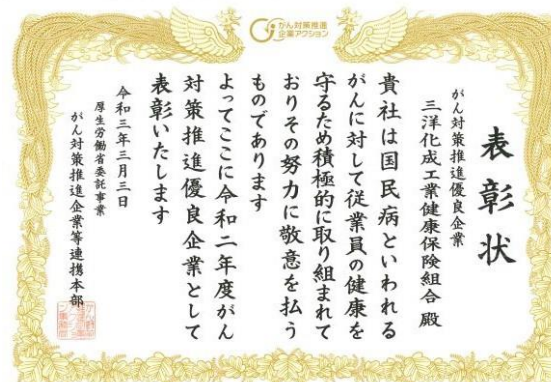 がん対策推進
企業アクション
表彰状
がん対策推進優良企業
三洋化成工業健康保険組合 殿
貴社は国民病といわれる
がんに対して従業員の健康を
守るため積極的に取り組まれて
おりその努力に敬意を払う
ものであります
よってここに令和二年度がん
対策推進優良企業として
表彰いたします
令和三年三月三日
厚生労働省委託事業
がん対策推進企業等連携本部